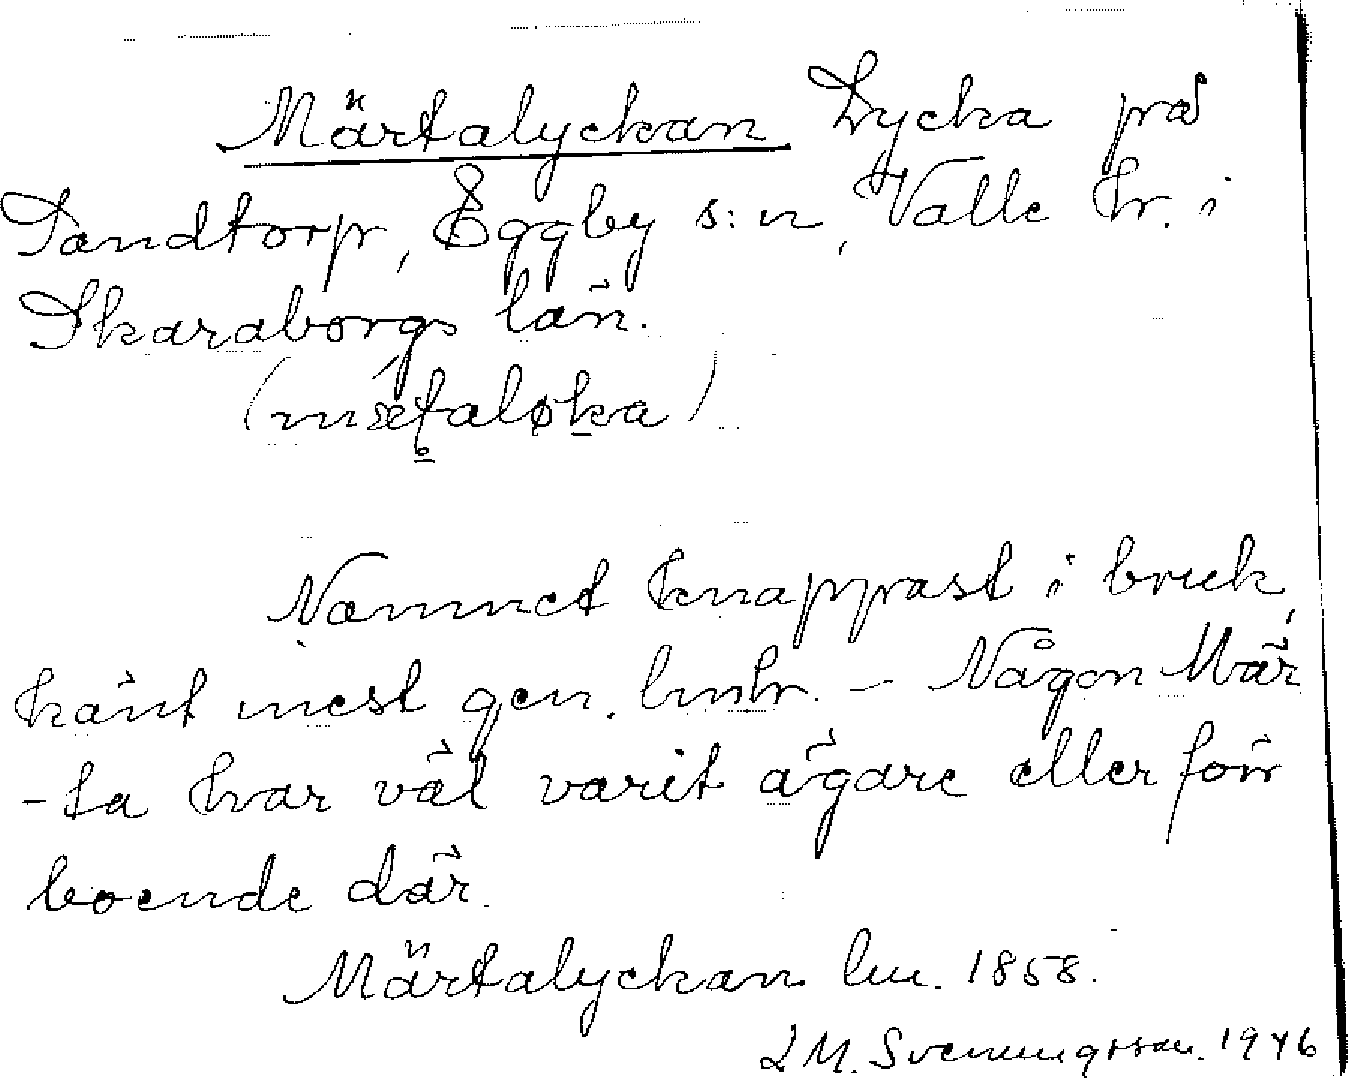 Märtalyckan Lycka på
Sandtorp, Eggby s:n, Valle hr. i
Skaraborgs län.
Namnet knappast i bruk,
känt mest gen. lmhr. – Någon Mär
-ta har väl varit ägare eller för
boende där.
Märtalyckan lm. 1858.
L M. Svenungsson. 1946